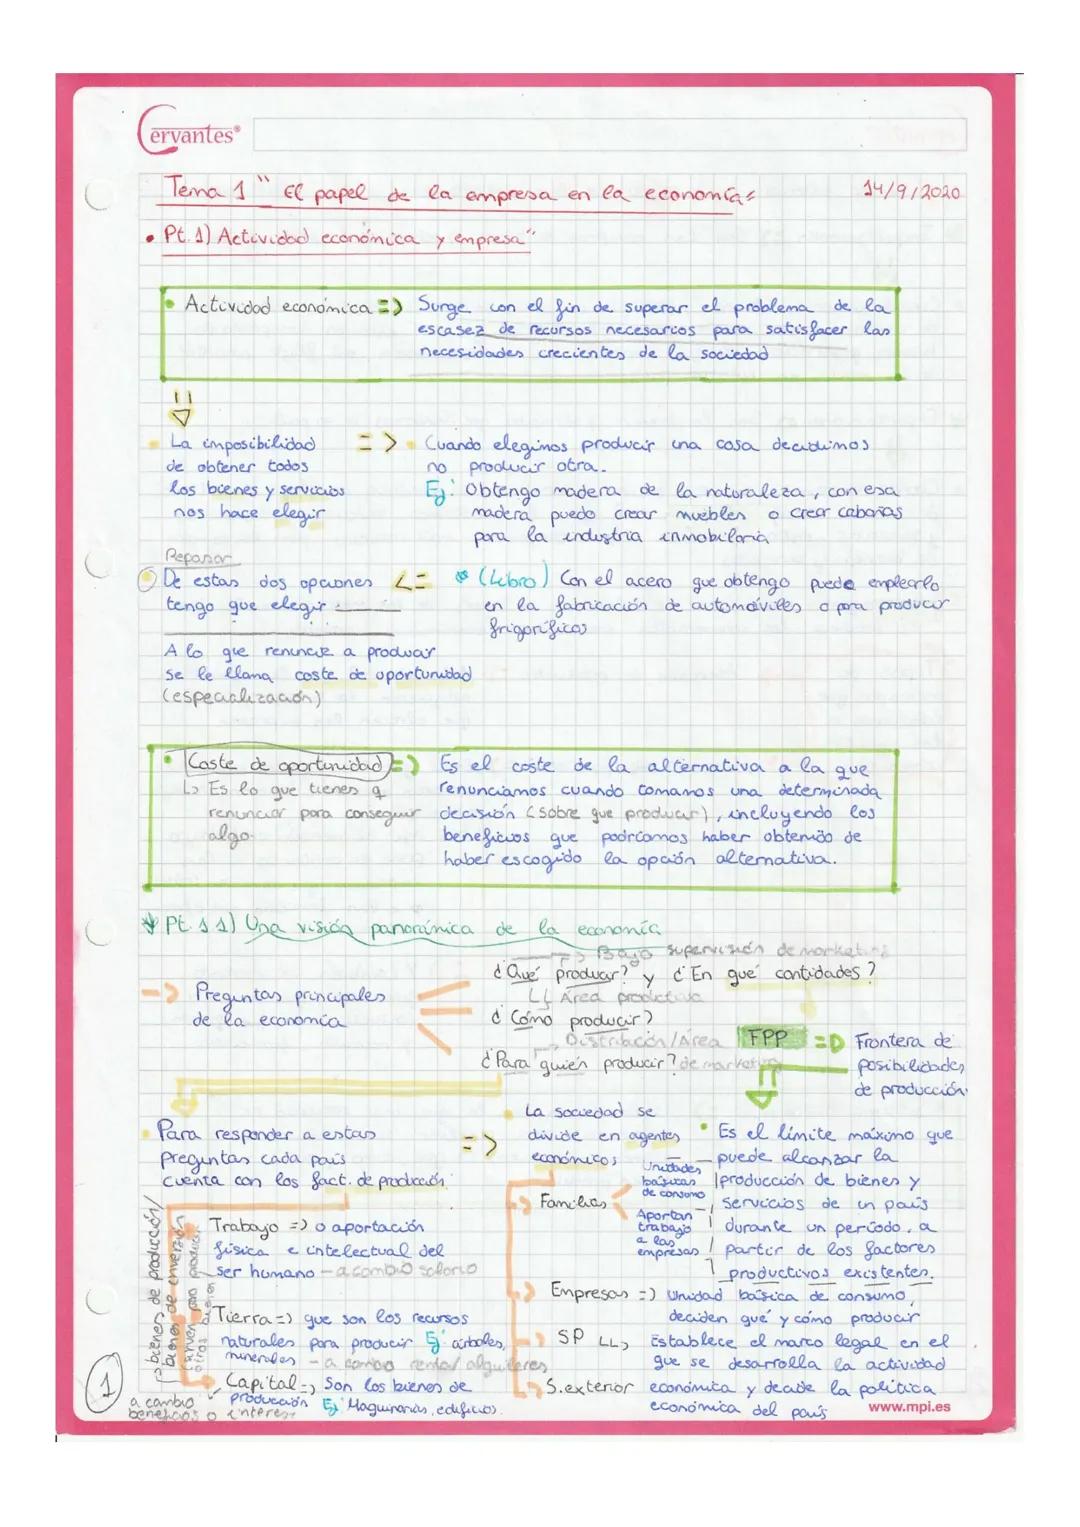 Cervantes®
Tema 1 " El papel de la empresa en la economía"
14/9/2020
• Pt. 1) Actividad económica y empresa"
• Actividad económica => Surge con el fin de superar el problema de la
escasez de recursos necesarios para satisfacer las
necesidades crecientes de la sociedad
La imposibilidad
de obtener todos
los bienes y servicios
nos hace elegir
=> Cuando elegimos producir una cosa decidimos
no producir otra.
Ej: Obtengo madera de la naturaleza, con esa
madera puedo crear muebles o crear cabañas
para la industria inmobilaria
Repasar
De estas dos opciones <=
tengo que elegir
(Libro) Con el acero que obtengo puede emplearlo
en la fabricación de automóviles o para producir
frigoríficos
A lo que renuncie a producir
se le llama coste de oportunidad
(especialización)
• Coste de oportunidad =>
↳ Es lo que tienes q
renunciar para conseguir
algo.
Es el coste de la alternativa a la que
renunciamos cuando tomamos una determinada
decisión (sobre que producir), incluyendo los
beneficios que podríamos haber obtenido de
haber escogido la opción alternativa.
Pt. 1 1) Una visión panorámica de la economía
Bajo supervisión de marketing
-> Preguntas principales
de la economía
¿Qué producir? y ¿En qué cantidades?
↳ Área productiva
¿Cómo producir?
Distribución/Área
¿Para quién producir? de marketing
FPP => Frontera de
posibilidades
de producción.
Para responder a estas
preguntas cada país
cuenta con los fact. de producción.
=> La sociedad se
divide en agentes
económicos
• Es el límite máximo que
puede alcanzar la
producción de bienes y
servicios de un país
durante un período, a
partir de los factores
productivos existentes.
Familias
Unidades
básicas
de consumo
Aportan
trabajo
a las
empresas
Trabajo => o aportación
física e intelectual del
ser humano - a cambio salario
Empresas => Unidad básica de consumo,
deciden qué y cómo producir
Tierra => que son los recursos
naturales para producir Ej: árboles,
minerales - a cambio rentas/alquileres
SP ↳ Establece el marco legal en el
que se desarrolla la actividad
económica y decide la política
económica del país
S.exterior
Capital => Son los bienes de
producción Ej: Maquinarias, edificios.
a cambio
beneficios o interes
bienes de producción/
bienes de inversión
sirven para producir
otros bienes
1
www.mpi.es